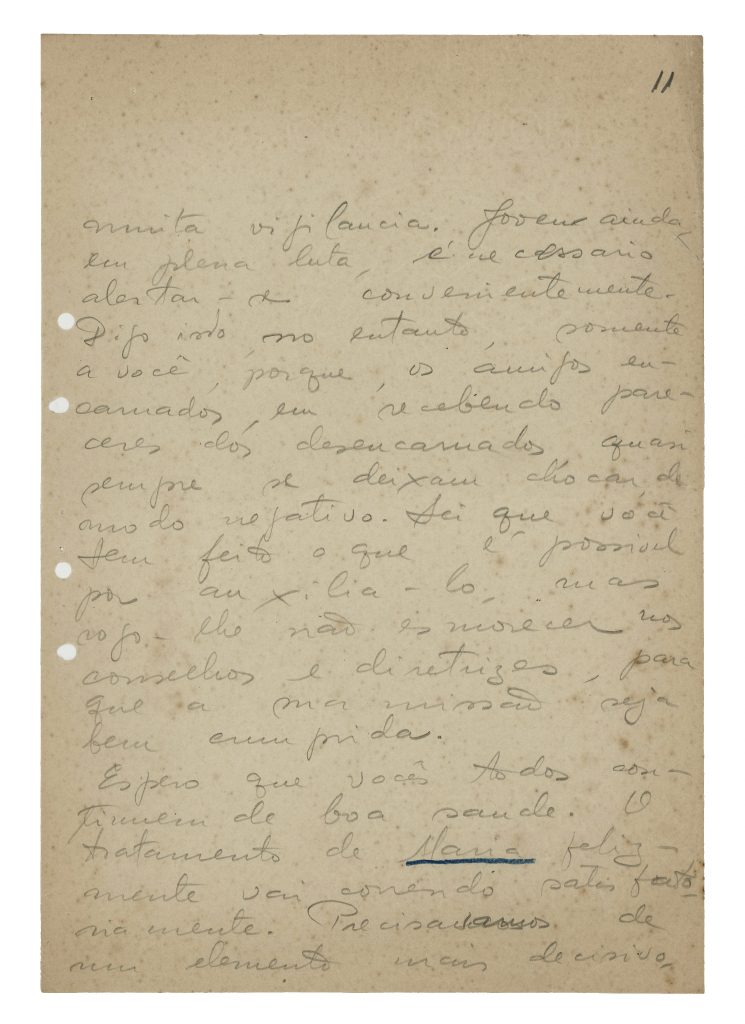 11
muita vigilancia. Jovem ainda,
em plena luta, é necessario
alertar-se convenientemente.
Digo isto, no entanto, somente
a você, porque, os amigos en-
carnados, em recebendo pare-
ceres dos desencarnados, quasi
sempre se deixam chocar de
modo negativo. Sei que você
tem feito o que é possivel
por auxilia-lo, mas
rogo-lhe não esmorecer nos
conselhos e diretrizes, para
que a sua missão seja
bem cumprida.
Espero que vocês todos con-
tinuem de boa saude. O
tratamento de Maria feliz-
mente vai correndo satisfato-
riamente. Precisavamos de
um elemento mais decisivo,